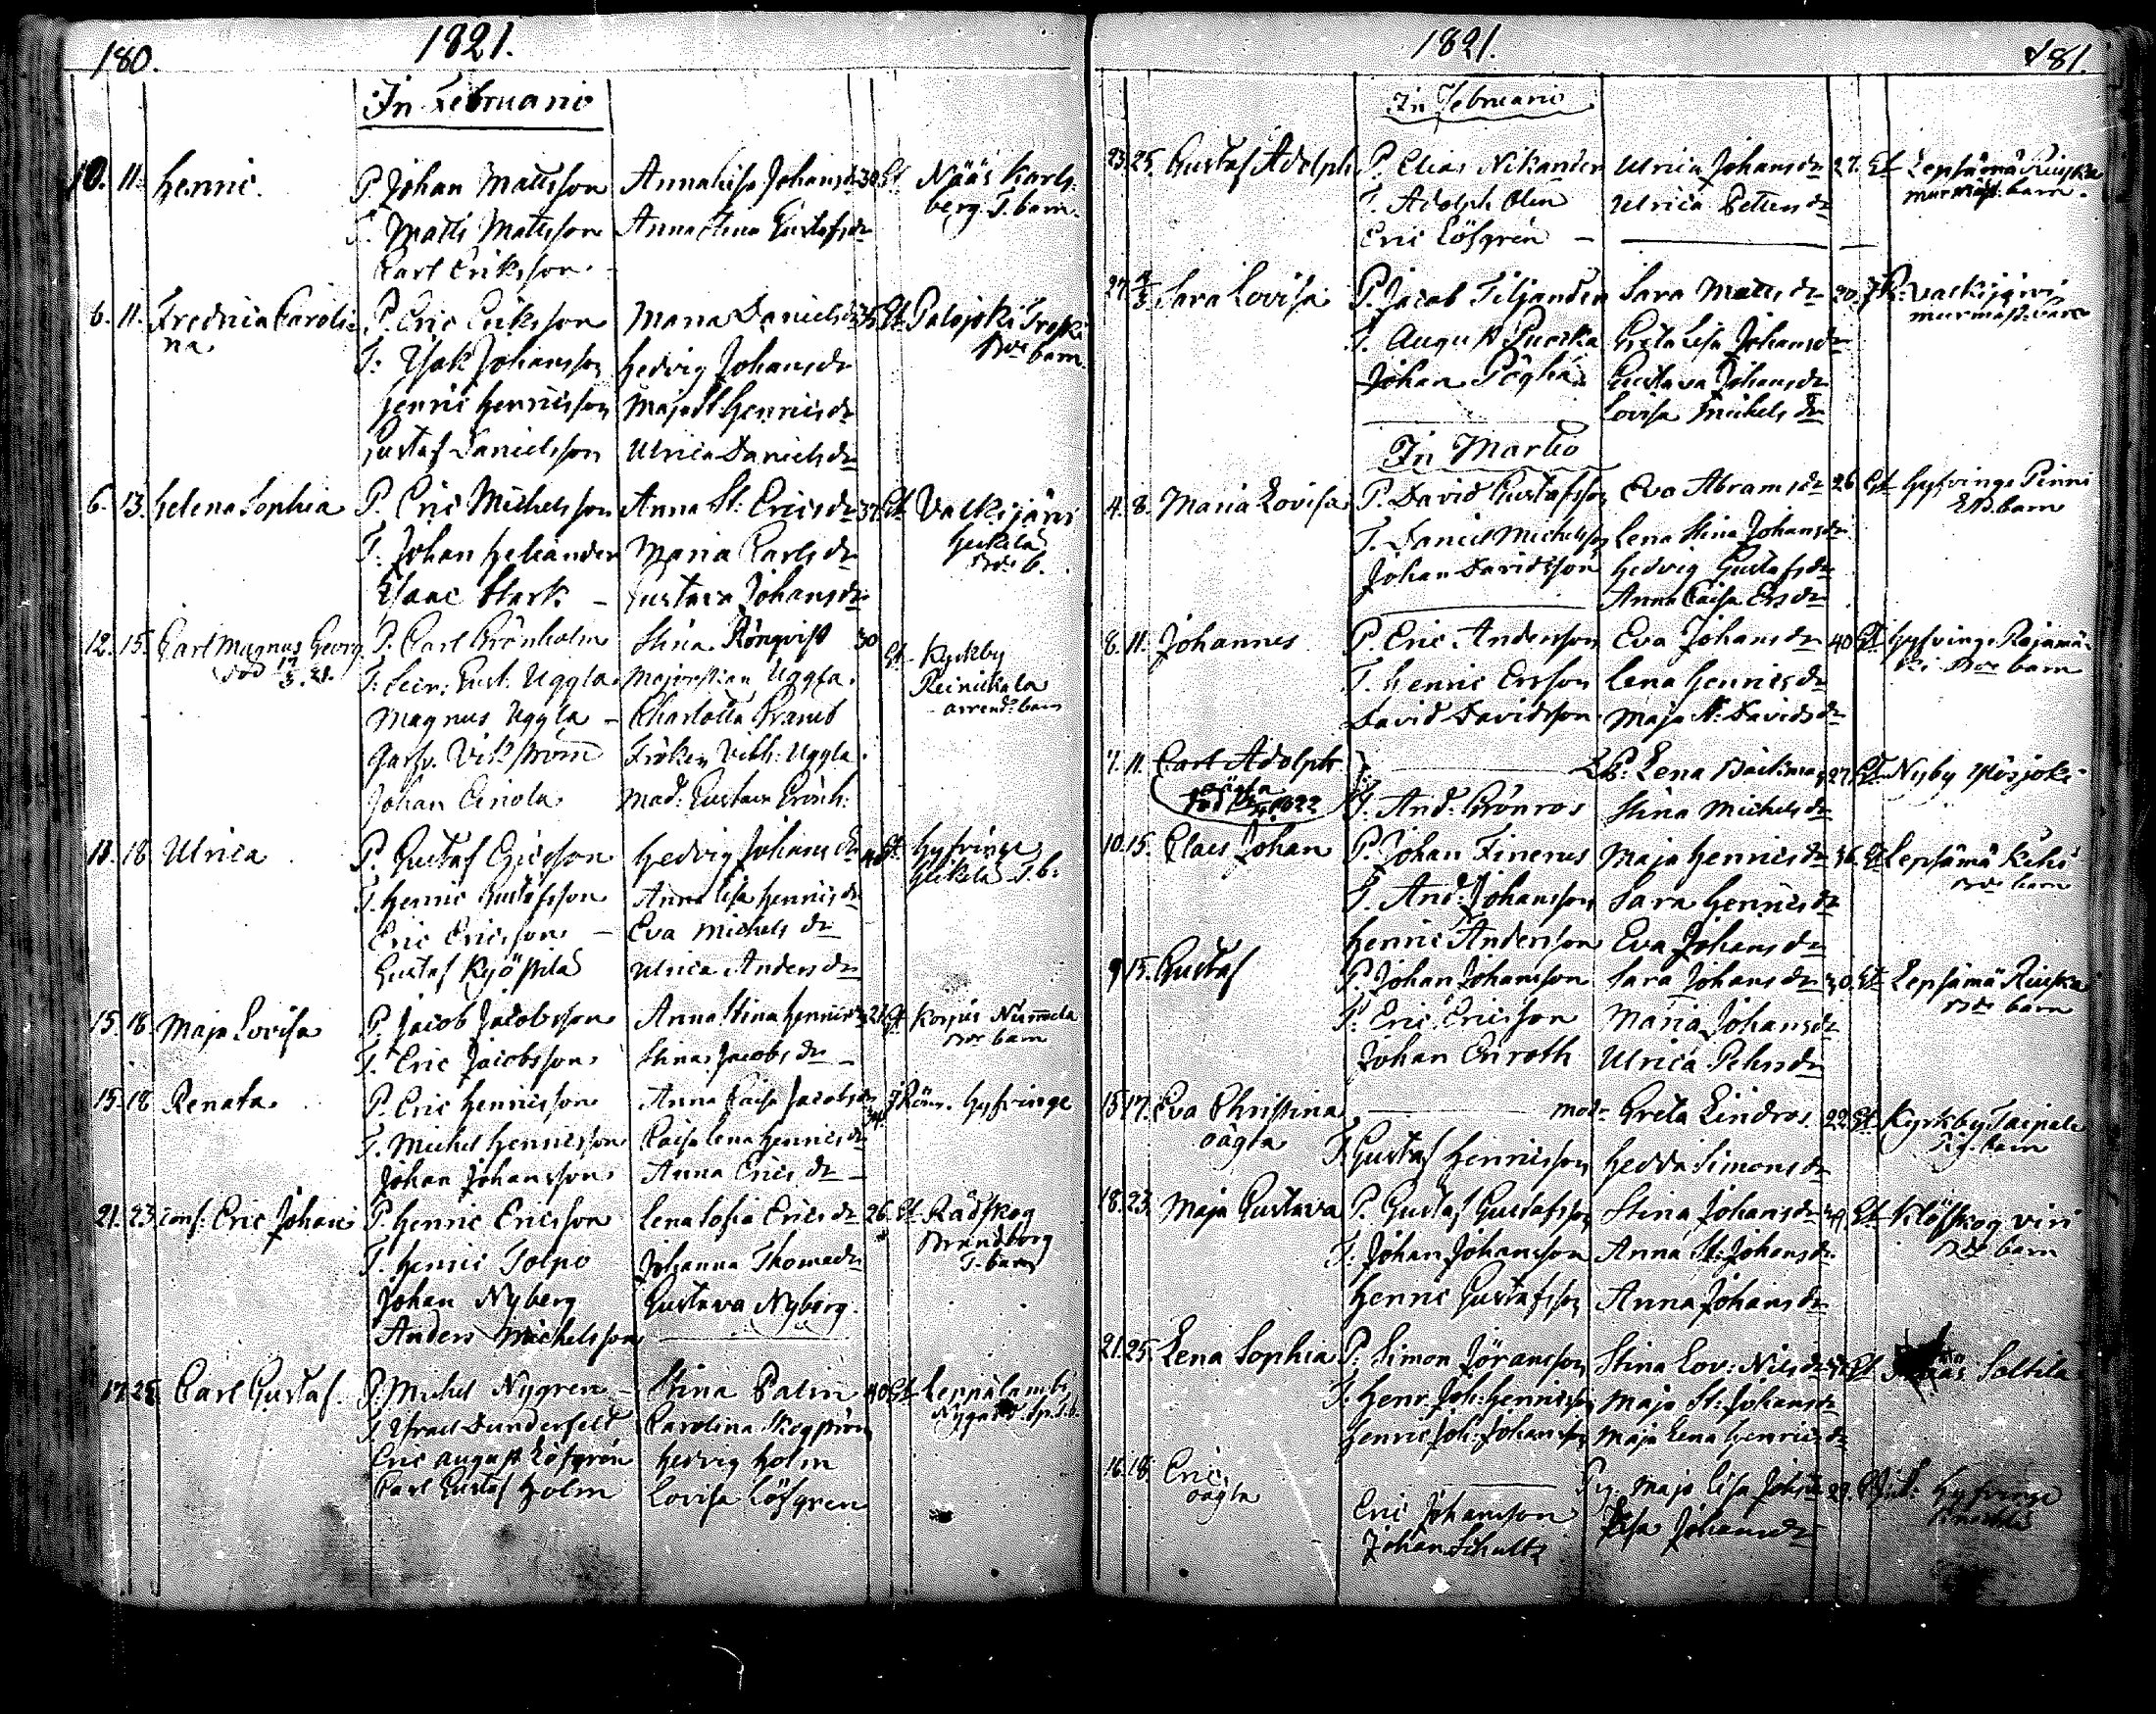 180. 1821.
In Februario
10. 11. Henric. P. Johan Mattsson Anna Lisa Johansdr 30 Et Nääs Karls-
berg. T. barn.
T. Matts Mattsson Anna Stina Gustafsdr
Carl Eriksson
6. 11. Fredrica Caroli- P. Eric Eriksson Maria Danielsdr 35 Et Palojoki
na Bde barn
T. Isak Johansson Hedvig Johansdr
Henric Henricsson Maja St Henricsdr
Gustaf Danielsson Ulrica Danielsdr
6. 13. Helena Sophia P. Eric Michelsson Anna St: Ericsdr 37 Et Valkjärvi
T. Johan Heliander Maria Carlsdr Heikilä
Bde b.
Isaac Stark Gustava Johansdr
12. 15. Carl Magnus Georg P. Carl Grönholm Stina Rönqvist 30 Et Kyrkby
död 17/3. 21. T: Gust: Uggla Majorskan Uggla. Reinickala
arrend: barn
Magnus Uggla Charlotta
Garfv. Vikström Fröken Vilh: Uggla.
Johan Mad: Gustava Grönh:
18. Ulrica P. Gustaf Ericsson Hedvig Johansdr 40 Et Hyfvinge
T. b.
T. Henric Gustafsson Anna Lisa Henricsdr
Eric Ericsson Eva Michelsdr
Gustaf Ulrica Andersdr
15. 18. Maja Lovisa P. Jacob Jacobsson Anna Stina Henricsdr Et Korjus Nummela
Bde barn
T. Eric Jacobsson Stina Jacobsdr
15. 18 Renata P. Eric Henricsson Anna Caisa Jacobsdr Hyfvinge
T. Michel Henricsson Caisa Lena Henricsdr
Johan Johansson Anna Ericsdr
21. 23. Eric Johan P. Henric Ericsson Lena Sofia Ericsdr 26. Et Rådskog
Brandborg
T. barn
T. Henric Tolpo Johanna Thomedr
Johan Nyberg Gustava Nyberg.
Anders Michelsson
17. 25 Carl Gustaf. P. Michel Nygren Stina Palin 40 Et Leppälambi
Nygård
T. Israel Dunderfelt Carolina Skogström
Eric August Löfgrén Hedvig Holm
Carl Gustaf Holm Lovisa Löfgren
1821. 181.
In Februario
23. 25. Gustaf Adolph P. Elias Nikander Ulrica Johansdr 27. Et Lepsämä Ruiska
murmäst. barn.
T. Adolph Olin Ulrica Pettersdr
Eric Löfgrén
27. 4/3 Sara Lovisa P. Jacob Tiljander Sara Mattsdr 20. Valkjärvi
murmäst. barn
T. August Greta Lisa Johansdr
Johan Gustava Johansdr
Lovisa Michelsdr
In Martio
4. 8. Maria Lovisa P. David Gustafsson Eva Abramsdr 26 Et Hyfvinge Pinni
barn
T. Daniel Michelsson Lena Stina Johansdr
Johan Davidsson Hedvig Gustafsdr
Anna Caisa Ersdr
8. 11. Johannes P. Eric Andersson Eva Johansdr 40 Et Hyfvinge Rajamä-
ki Bde barn
T. Henric Ersson Lena Henricsdr
David Davidsson Maja St: Davidsdr
7. 11. Carl Adolph Lena Backman 27 Et Nyby
oägta
T. And: Grönros Stina Michelsdr
10. 15. Claes Johan P. Johan Finerus Maja Henricsdr 36. Et Lepsämä Kihi
Bde barn
T. And: Johansson Sara Henricsdr
Henric Andersson Eva Johansdr
9 15. Gustaf P. Johan Johansson Sara Johansdr 30. Et Lepsämä Ruiska
Bde barn
T. Eric Ericsson Maria Johansdr
Johan Enroth Ulrica Pehrsdr
15 17. Eva Christina modr Greta Lindros. 22 Et Kyrkby Taipale
oägta barn
T. Gustaf Henricsson Hedda Simonsdr
18. 23. Maja Gustava P. Gustaf Gustafsson Stina Johansdr Et Klöfskog
Bde barn
T. Johan Johansson Anna St: Johansdr
Henric Gustafsson Anna Johansdr
21. 25. Lena Sophia P. Simon Jöransson Stina Lov: Nilsdr Et Soltila
T. Henr. Joh: Henricsson Maja St: Johansdr
Henric Joh: Johansson Maja Lena Henricsdr
16. 18. Eric Maja Lisa 29. Hyfvinge
oägta
Eric Johansson Lisa Johansdr
Johan Schultz